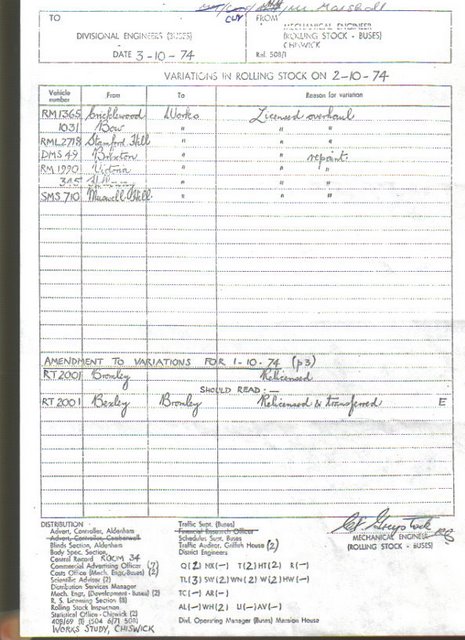 Marshall
CUY
TO
FROM
DIVISIONAL ENGINEERS (BUSES)
MECHANICAL ENGINEER
(ROLLING STOCK - BUSES)
CHISWICK
DATE 3-10-74
Ref. 508/1
VARIATIONS IN ROLLING STOCK ON 2-10-74
Vehicle number From To Reason for variation
RM1365 Cricklewood Works Licensed overhaul
1031 Bow " " "
RML2718 Stamford Hill " " "
DMS 49 Brixton " " repaint
RM 1990 Victoria " " "
345 " " "
SMS 710 Muswell Hill " " "
AMENDMENT TO VARIATIONS FOR 1-10-74 (p3)
RT2001 Bromley Relicensed
SHOULD READ:—
RT2001 Bexley Bromley Relicensed & transferred E
DISTRIBUTION
Advert. Controller, Aldenham
Advert. Controller, Camberwell
Blinds Section, Aldenham
Body Spec. Section,
Central Record ROOM 34
Commercial Advertising Officer (7)
Costs Office (Mech. Engr. Buses) (2)
Scientific Adviser (2)
Distribution Services Manager
Mech. Engr. (Development - Buses) (2)
R. S. Licensing Section (3)
Rolling Stock Inspection
Statistical Office - Chiswick (2)
408/69 (B) 1504 6/71 5081
WORKS STUDY, CHISWICK
Traffic Supt. (Buses)
Financial Research Officer
Schedules Supt. Buses
Traffic Auditor, Griffith House (2)
District Engineers
Q(2) NX(—) T(2) HT(2) R(—)
TL(3) SW(2) WN(2) W(2) HW(—)
TC(—) AR(—)
AL(—) WH(2) U(—) AV(—)
Divl. Operating Manager (Buses) Mansion House
MECHANICAL ENGINEER
(ROLLING STOCK - BUSES)